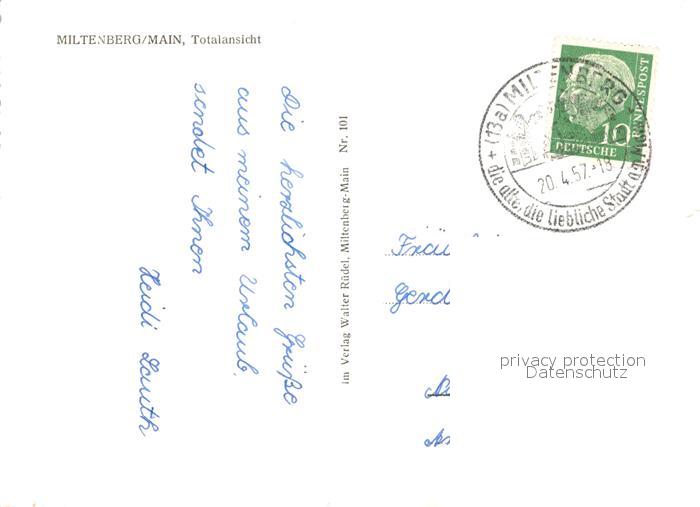 MILTENBERG/MAIN, Totalansicht
Die herzlichsten Grüße
aus meinem Urlaub,
sendet Ihnen
Heidi Lauth
im Verlag Walter Rüdel, Miltenberg-Main Nr. 101
(13a) MILTENBERG
20.4.57.-18
die alte, die liebliche Stadt a.
10
DEUTSCHE
BUNDESPOST
Gerd
privacy protection
Datenschutz